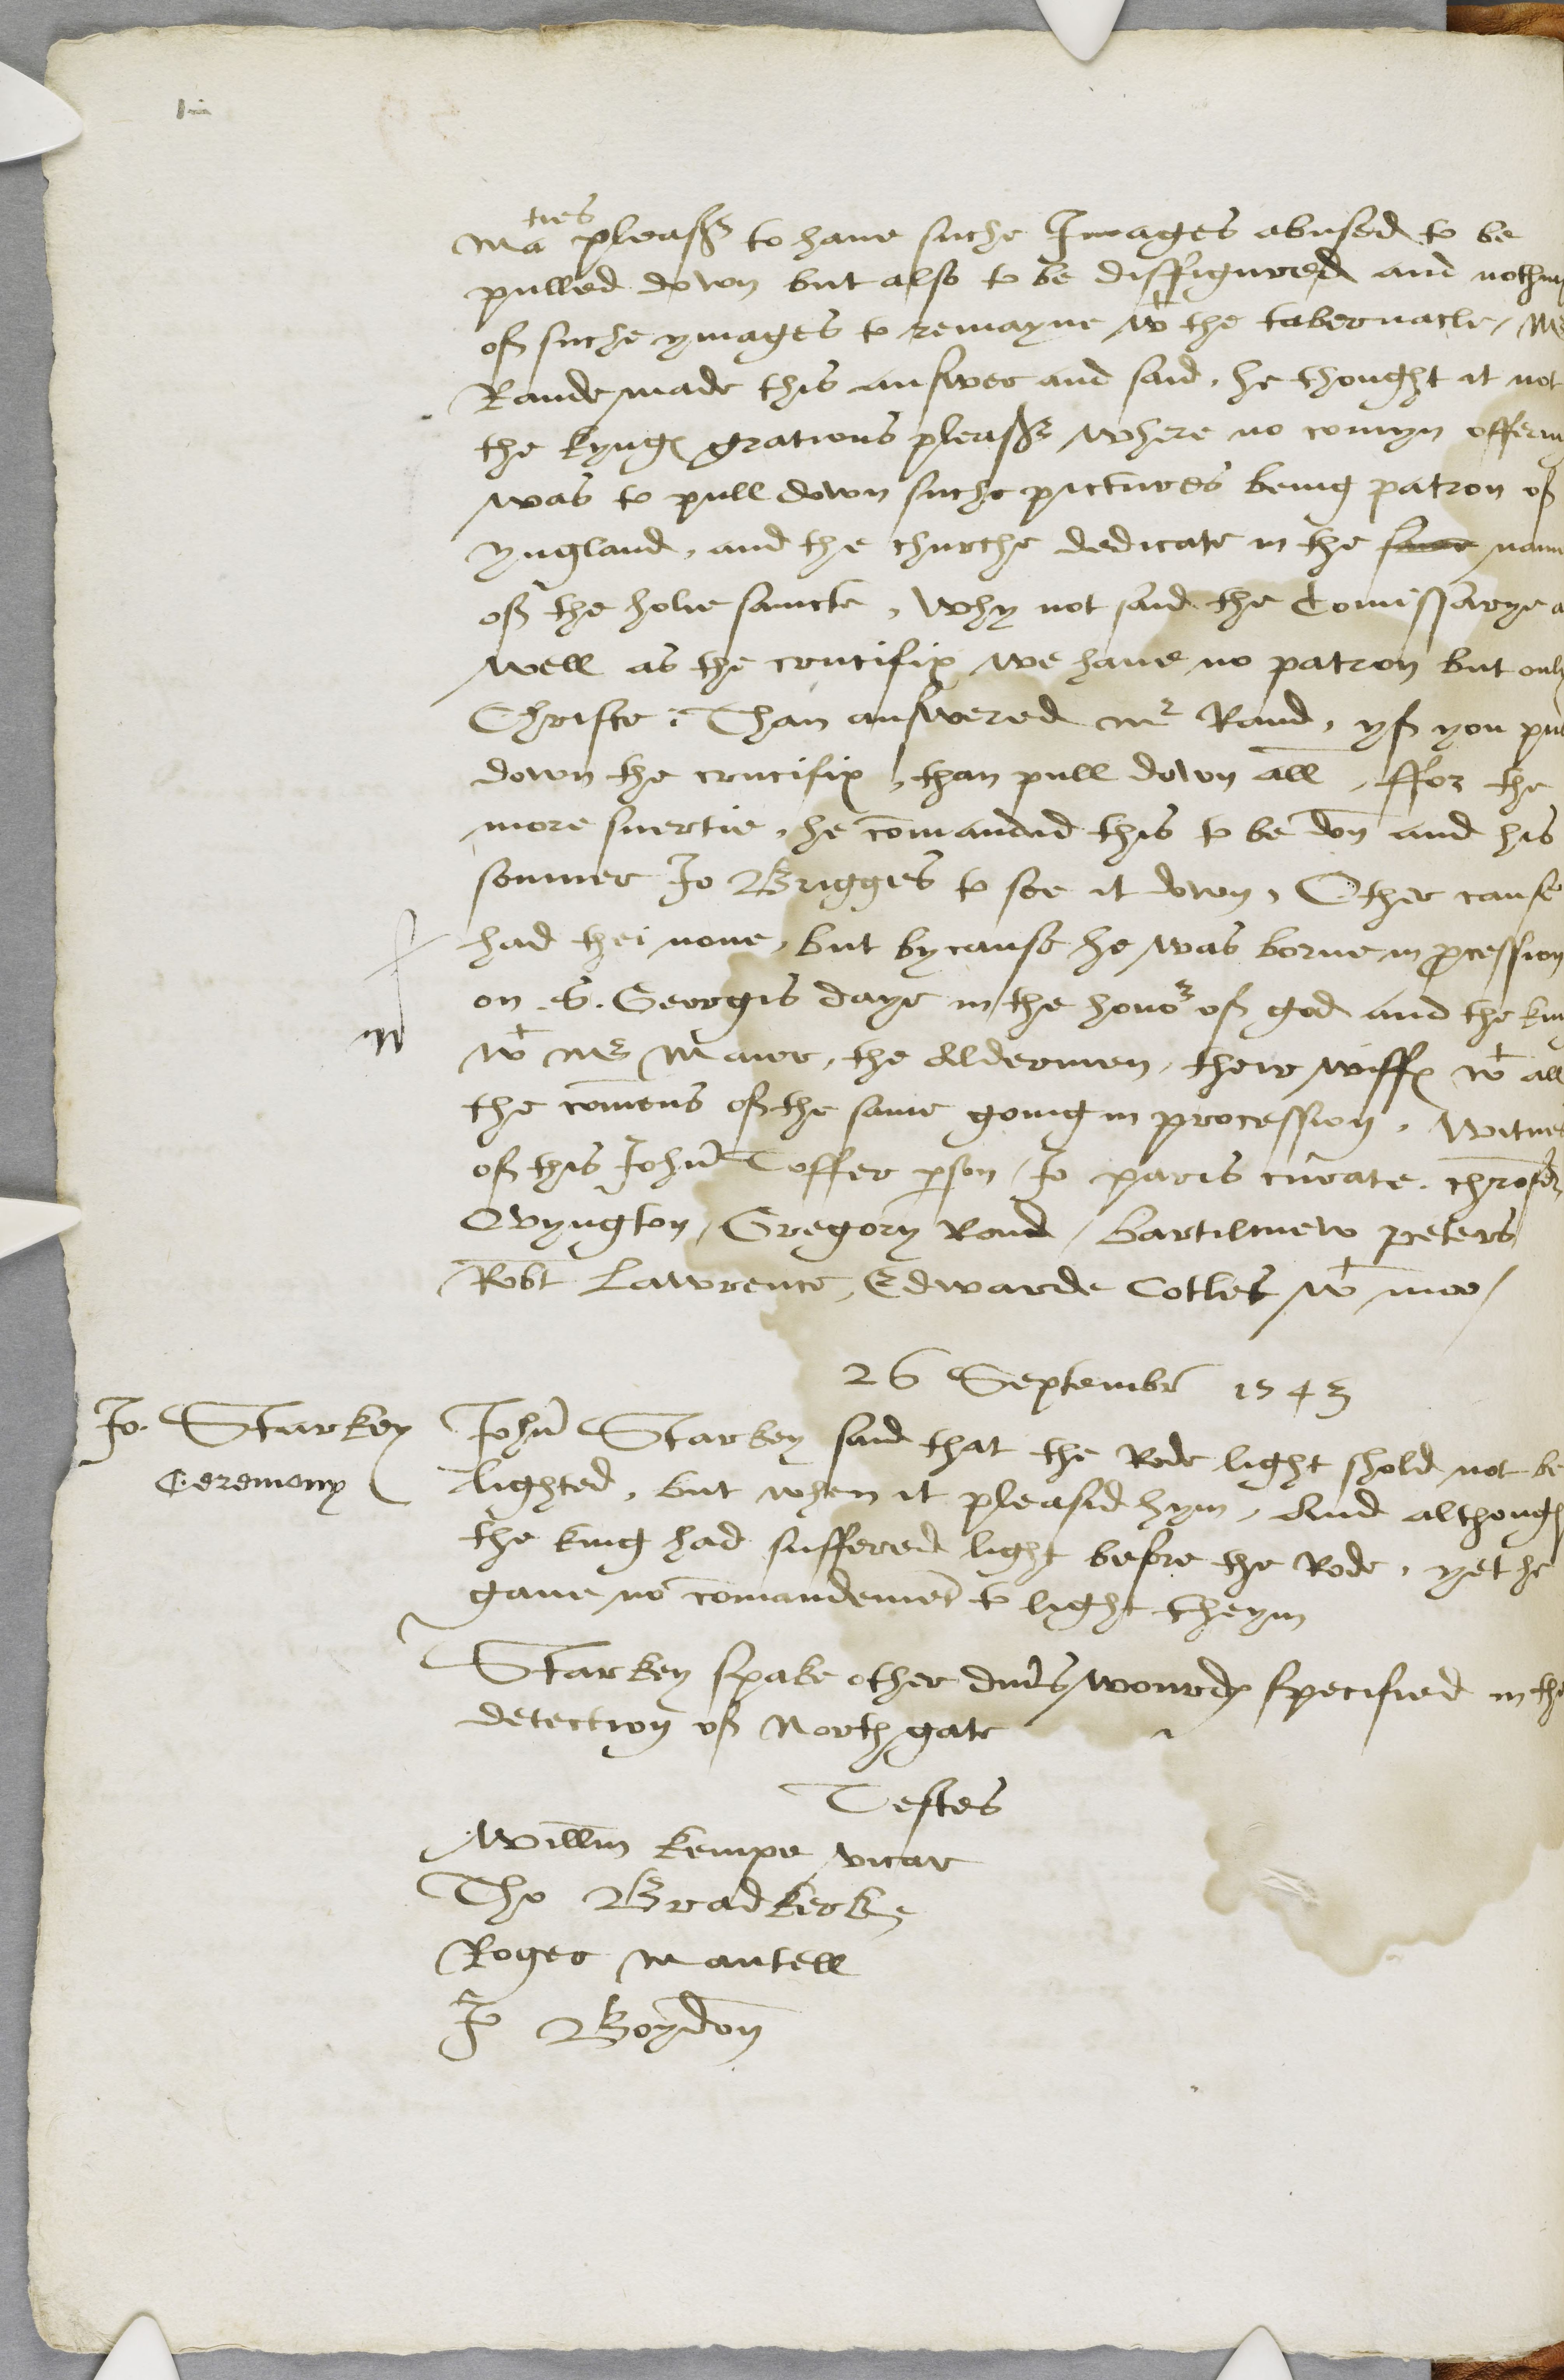 Ma ties pleasr to haue suche Images abused to be
pulled down but also to be diffigured and nothin
of suche ymages to remayne wt the tabernacle / Mr
Rande made this answer and said, he thought it not
the kynges gratious pleasr where no comyn offerin
was to pull down suche pictures being patron of
yngland, and the churche dedicate in the same nam
of the holie sancte, Why not said the Comissarye a
well as the crucifix we haue no patron but only
Christe. Than answered mr Rand, yf you pul
down the crucifix, than pull down all, ffor the
more suertie, he comandid this to be don and his
somner Jo Brigges to see it down, Other cause
had thei none, but bycause he was borne in pcession
on .S. Georgis daye in the honor of god and the kin
wt mr Maior, the Aldermen, their wiffes wt all
the comens of the same going in procession, Witnes
of this John Toffer pson / Jo paris curate. chrofer
Ovyngton / Gregory Rand / Bartilmew peters
Robt Lawrence, Edwarde Cotles wt moo /
26 Septembr 1543
Jo. Starkey
Ceremony
John Starkey said that the Rode light shold not be
lighted, but when it pleasid hym, And althoug
the king had suffered light before the Rode, yet he
gaue no comandemet to light theym
Starkey spake other diuls wourdes specified in the
detection of Northgate
Testes
Willm kempe vicar
Tho Bradkerke
Roger Mantell
Jo Boydon